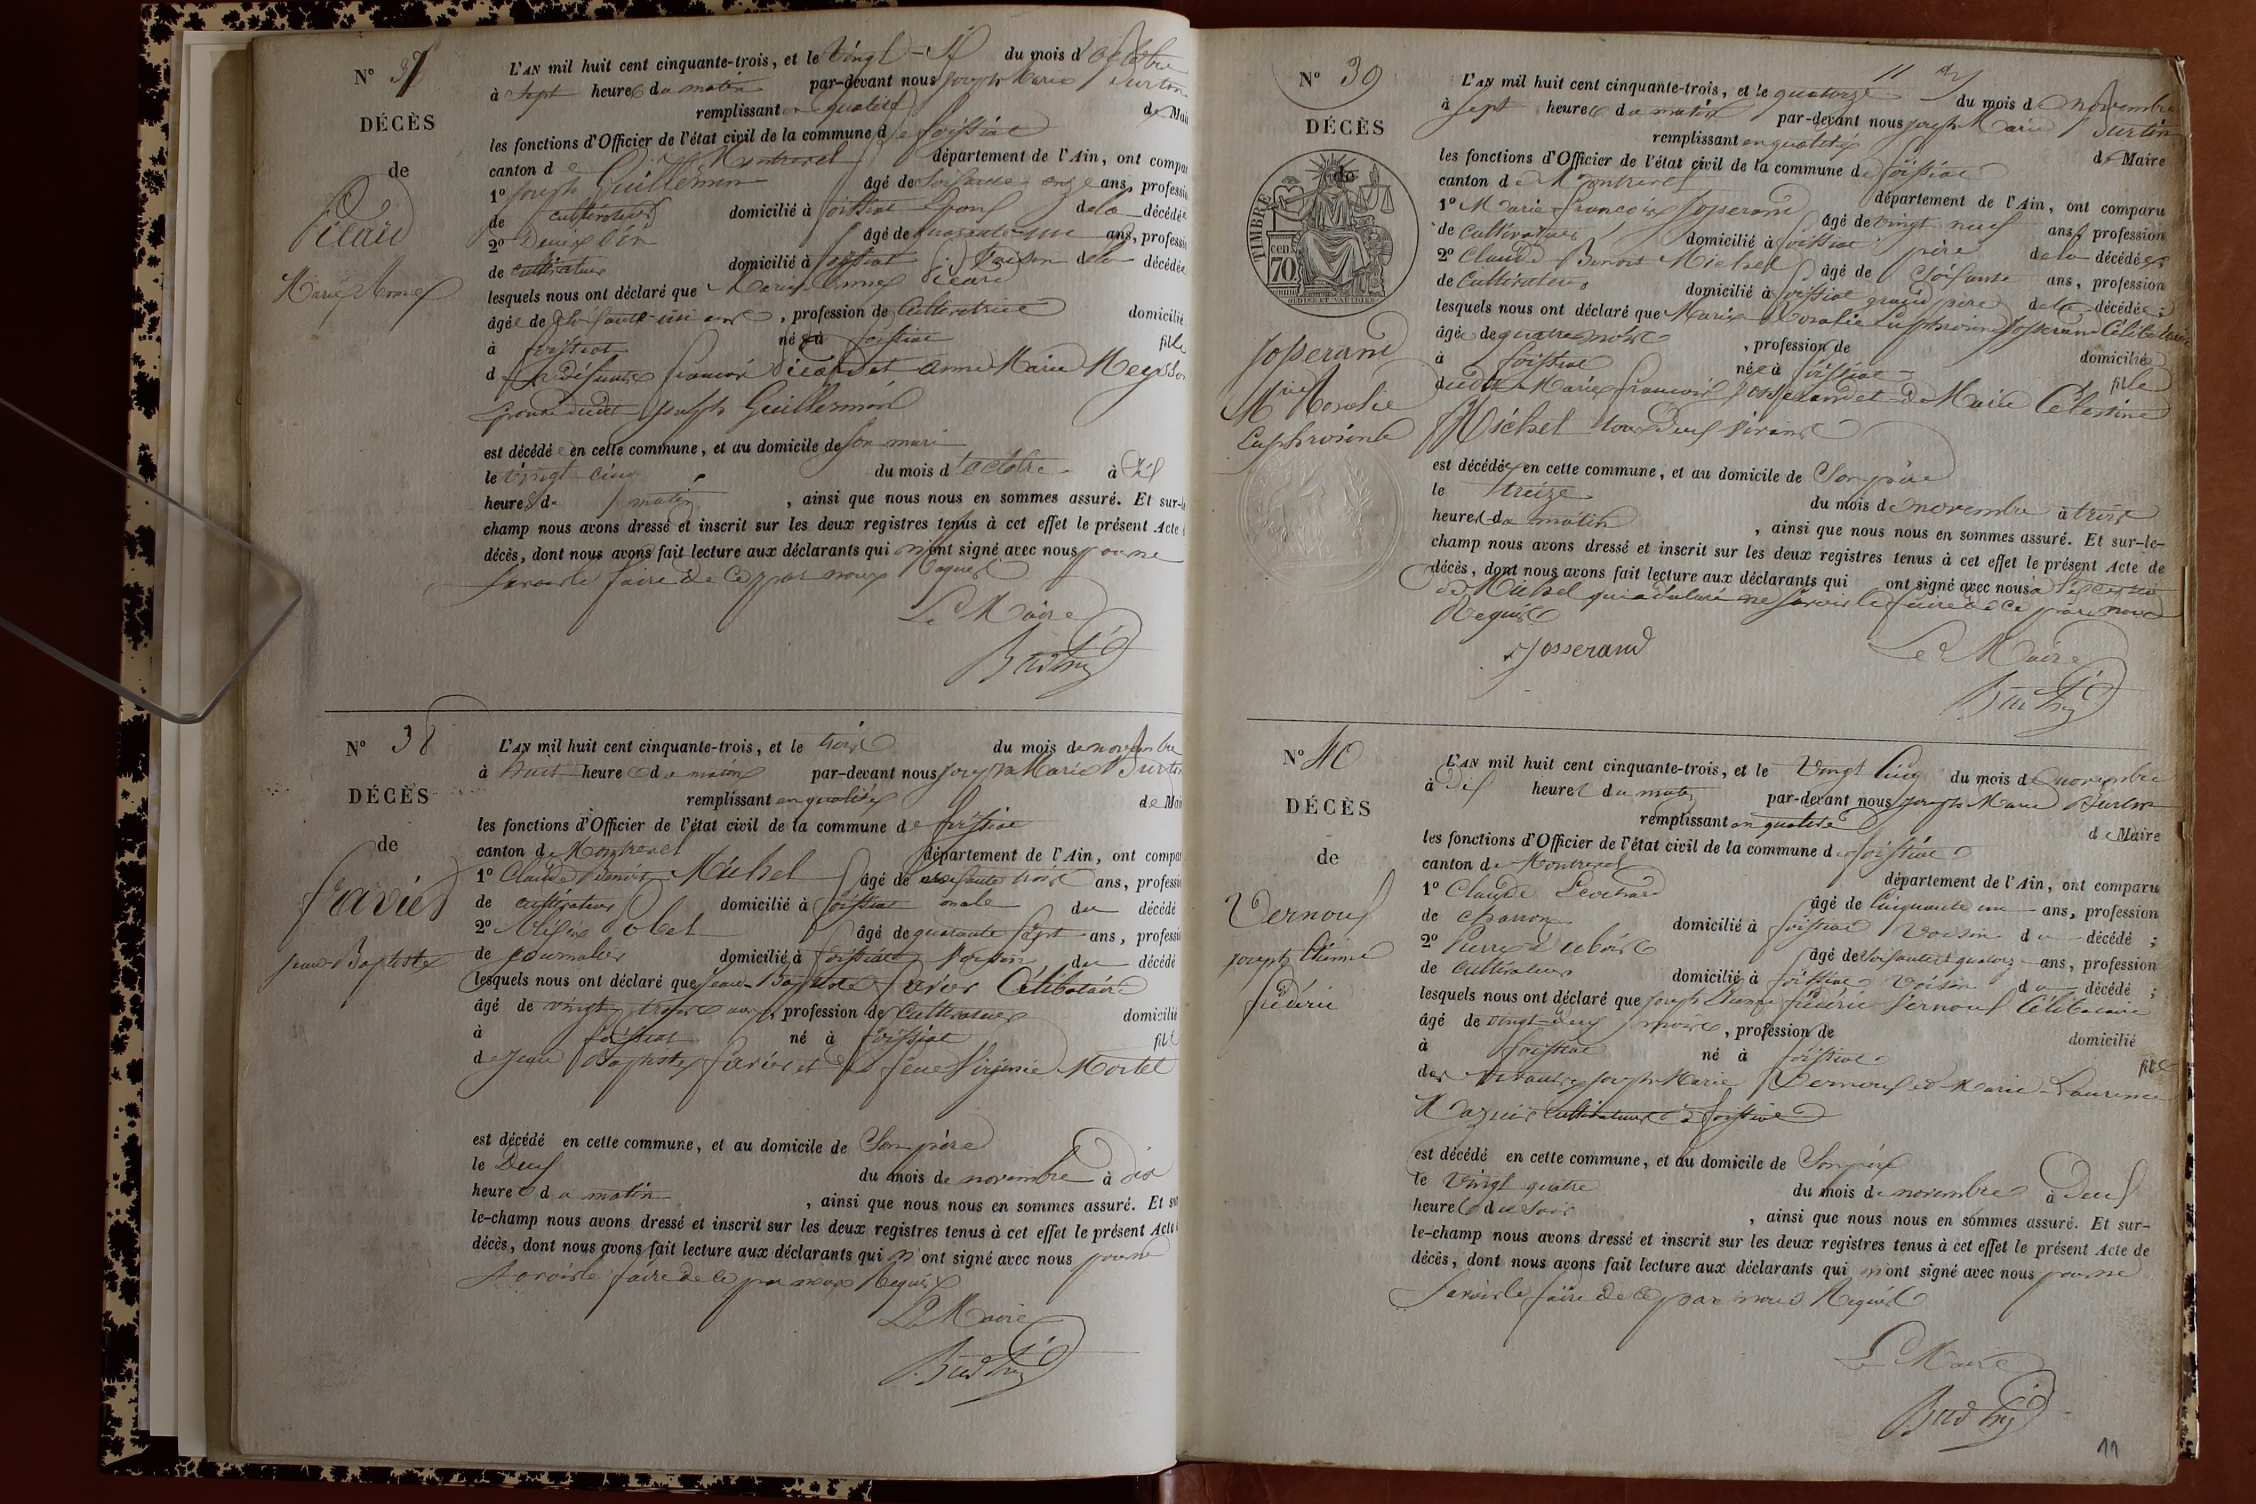 N° 37
DÉCÈS
de
Picard
Marie Anne
L'AN mil huit cent cinquante-trois, et le vingt-six du mois d'octobre
à sept heures du matin par-devant nous Joseph Marie Burtin
remplissant en qualité de Mai
les fonctions d'Officier de l'état civil de la commune de foissiat
canton de Montrevel département de l'Ain, ont compar
1° Joseph Guillermin âgé de soixante onze ans, professio
de cultivateur domicilié à foissiat époux de la décédée
2° Denis âgé de quarante ans, professio
de cultivateur domicilié à foissiat voisin de la décédée
lesquels nous ont déclaré que Marie Anne Picard
âgée de soixante ans, profession de cultivatrice domicilié
à foissiat né à foissiat fille
d défunts françois Picard et Anne Marie
épouse dudit Joseph Guillermin
est décédée en cette commune, et au domicile de son mari
le vingt cinq du mois d'octobre à dix
heures du matin, ainsi que nous nous en sommes assuré. Et sur-le
champ nous avons dressé et inscrit sur les deux registres tenus à cet effet le présent Acte
décès, dont nous avons fait lecture aux déclarants qui n'ont signé avec nous pour ne
savoir le faire de ce par nous requis
Le Maire
Burtin
N° 38
DÉCÈS
de
favier
Jean Baptiste
L'AN mil huit cent cinquante-trois, et le trois du mois de novembre
à huit heures du matin par-devant nous Joseph Marie Burtin
remplissant en qualité de Mai
les fonctions d'Officier de l'état civil de la commune de foissiat
canton de Montrevel département de l'Ain, ont compar
1° Claude Benoit Michel âgé de soixante trois ans, professio
de cultivateur domicilié à foissiat oncle du décédé
2° Alexis obet âgé de quarante sept ans, professio
de journalier domicilié à foissiat voisin du décédé
lesquels nous ont déclaré que Jean-Baptiste favier Célibataire
âgé de vingt ans, profession de cultivateur domicilié
à foissiat né à foissiat fils
de Jean Baptiste favier et de feue Virginie Mortel
est décédé en cette commune, et au domicile de son père
le Deux du mois de novembre à dix
heures du matin, ainsi que nous nous en sommes assuré. Et sur
le-champ nous avons dressé et inscrit sur les deux registres tenus à cet effet le présent Acte
décès, dont nous avons fait lecture aux déclarants qui n'ont signé avec nous pour ne
savoir le faire de ce par nous requis
Le Maire
Burtin
N° 39
DÉCÈS
de
TIMBRE
cen
70
Josserand
Mie Rosalie
Euphrosine
L'AN mil huit cent cinquante-trois, et le quatorze du mois de novembre
à sept heures du matin par-devant nous Joseph Marie Burtin
remplissant en qualité de Maire
les fonctions d'Officier de l'état civil de la commune de foissiat
canton de Montrevel département de l'Ain, ont comparu
1° Marie françois Josserand âgé de vingt neuf ans, profession
de cultivateur domicilié à foissiat père de la décédée
2° Claude Benoit Michel âgé de soixante ans, profession
de cultivateur domicilié à foissiat grand père de la décédée ;
lesquels nous ont déclaré que Marie Rosalie Euphrosine Josserand Célibataire
âgée de quatre mois, profession de domiciliée
à foissiat née à foissiat fille
dudit Marie françois Josserand et de Marie Célestine
Michel tous deux vivants
est décédée en cette commune, et au domicile de son père
le treize du mois de novembre à trois
heures du matin, ainsi que nous nous en sommes assuré. Et sur-le-
champ nous avons dressé et inscrit sur les deux registres tenus à cet effet le présent Acte de
décès, dont nous avons fait lecture aux déclarants qui ont signé avec nous
Michel qui a déclaré ne savoir le faire de ce par nous
requis
Josserand
Le Maire
Burtin
N° 40
DÉCÈS
de
Vernoux
Joseph Etienne
frédéric
L'AN mil huit cent cinquante-trois, et le vingt cinq du mois de novembre
à dix heures du matin par-devant nous Joseph Marie Burtin
remplissant en qualité de Maire
les fonctions d'Officier de l'état civil de la commune de foissiat
canton de Montrevel département de l'Ain, ont comparu
1° Claude âgé de cinquante un ans, profession
de charron domicilié à foissiat voisin du décédé ;
2° Pierre âgé de soixante quatorze ans, profession
de cultivateur domicilié à foissiat voisin du décédé ;
lesquels nous ont déclaré que Joseph Etienne frédéric Vernoux Célibataire
âgé de vingt-deux mois, profession de domicilié
à foissiat né à foissiat fils
des Joseph Marie Vernoux et Marie Laurence
cultivateurs à foissiat
est décédé en cette commune, et au domicile de son père
le vingt quatre du mois de novembre à deux
heures du soir, ainsi que nous nous en sommes assuré. Et sur-
le-champ nous avons dressé et inscrit sur les deux registres tenus à cet effet le présent Acte de
décès, dont nous avons fait lecture aux déclarants qui n'ont signé avec nous pour ne
savoir le faire de ce par nous requis
Le Maire
Burtin
11